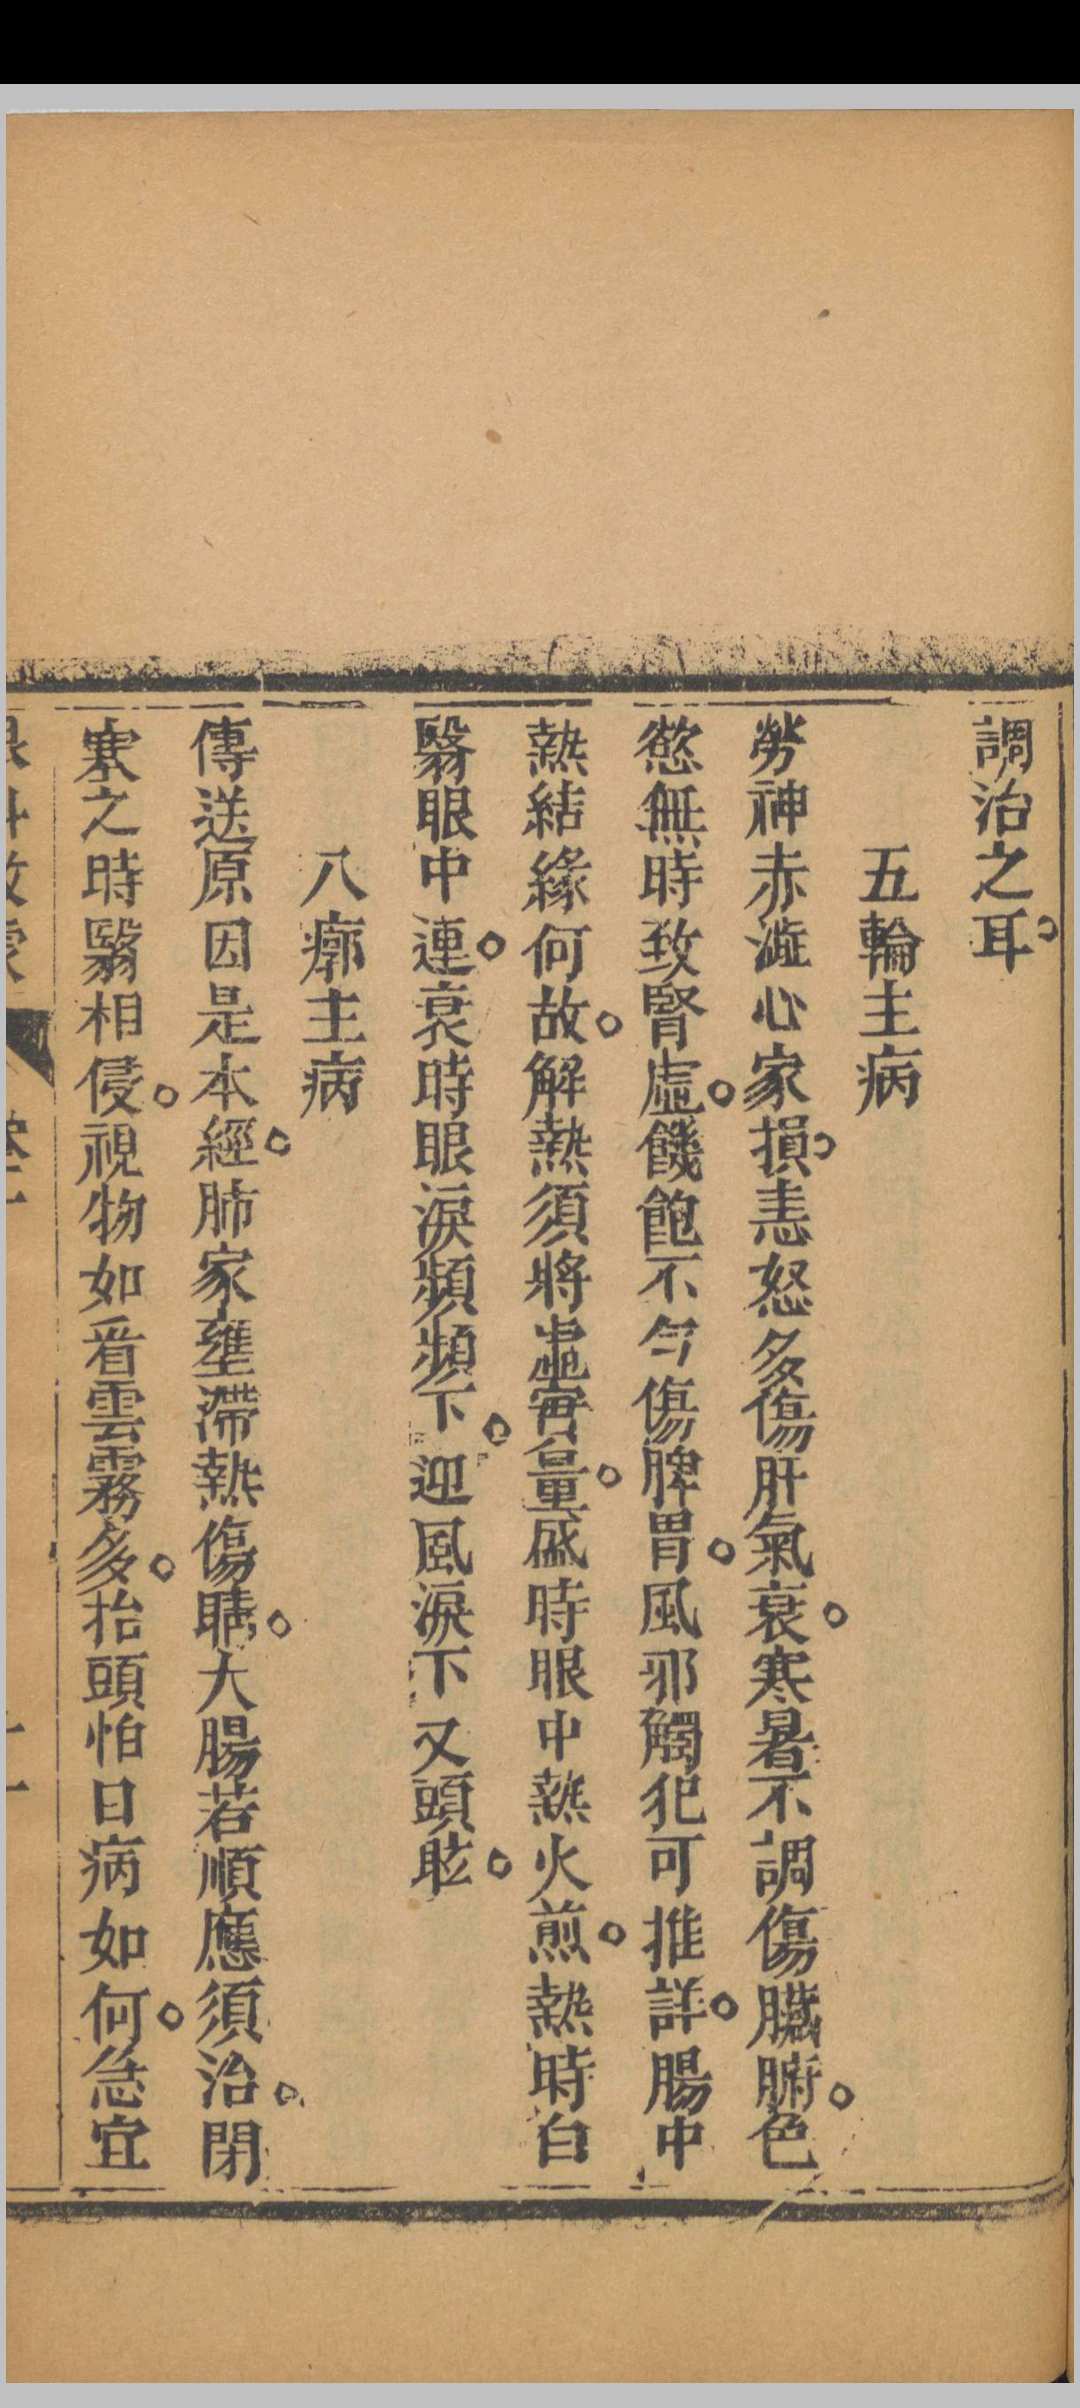 調治之耳
五輪主病
勞神赤澁心家損恚怒多傷肝氣衰寒暑不調傷臟腑色
慾無時致腎虛饑飽不勻傷脾胃風邪觸犯可推詳腸中
熱結緣何故解熱須將虛實量盛時眼中熱火煎熱時白
翳眼中連衰時眼淚頻頻下迎風淚下又頭眩
八廓主病
傳送原因是本經肺家壅滯熱傷睛大腸若順應須治閉
塞之時翳相侵視物如看雲霧多抬頭怕日病如何急宜